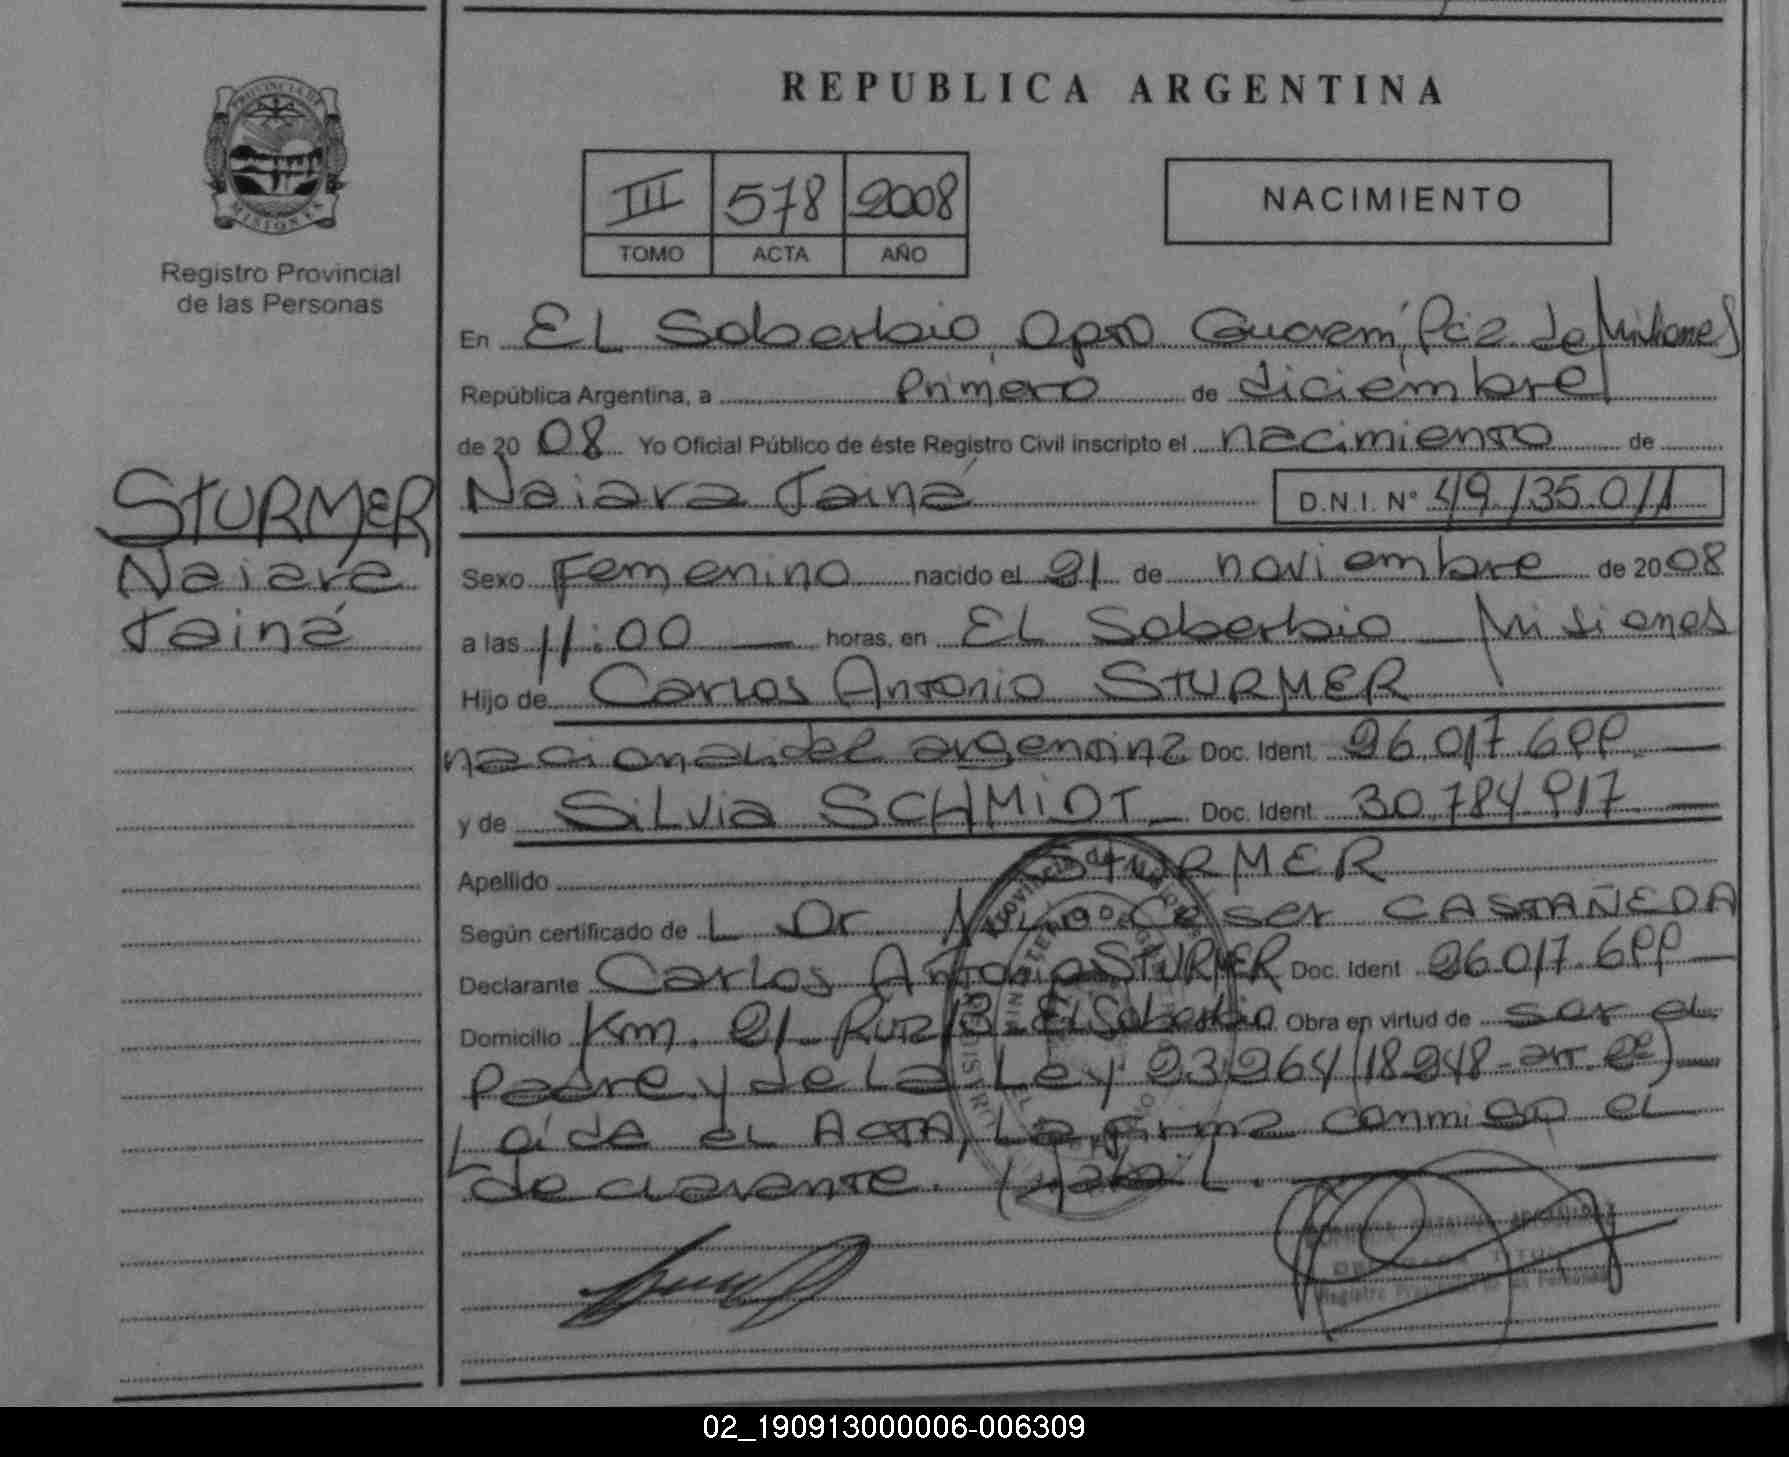 REPUBLICA ARGENTINA
PROVINCIA DE
MISIONES
Registro Provincial
de las Personas
III 578 2008
TOMO ACTA AÑO
NACIMIENTO
En EL Soberbio, Dpto Guaraní, Pcia. de Misiones
República Argentina, a Primero de diciembre
de 2008 Yo Oficial Público de éste Registro Civil inscripto el nacimiento de
STURMER
Naiara
Tainá
Naiara Tainá D.N.I. N° 49.135.011
Sexo Femenino nacido el 21 de noviembre de 2008
a las 11:00 horas, en EL Soberbio Misiones
Hijo de Carlos Antonio STURMER
nacionalidad argentina Doc. Ident. 26.017.699
y de SiLvia SCHMIDT Doc. Ident. 30.784.917
Apellido STURMER
Según certificado de L Dr Cesar CASTAÑEDA
Declarante Carlos Antonio STURMER Doc. Ident 26.017.699
Domicilio Km. 21 Ruta 13 El Soberbio Obra en virtud de ser el
Padre y de la Ley 23264 (18248-art. 2º)
Leída el ACTA, la firma conmigo el
declarante.
02_190913000006-006309